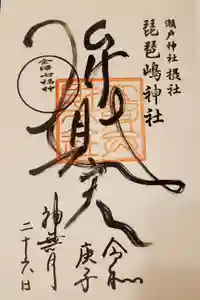 瀬戸神社 摂社
琵琶嶋神社
弁財天
金澤七福神
令和
庚子
神無月
二十六日